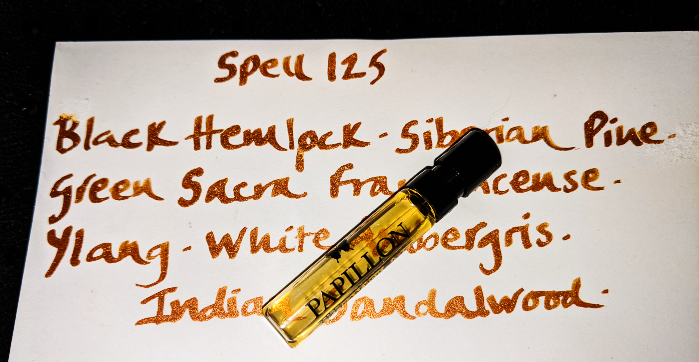 Spell 125
Black Hemlock · Siberian Pine.
Green Sacra Frankincense.
Ylang · White Ambergris.
Indian Sandalwood.
PAPILLON